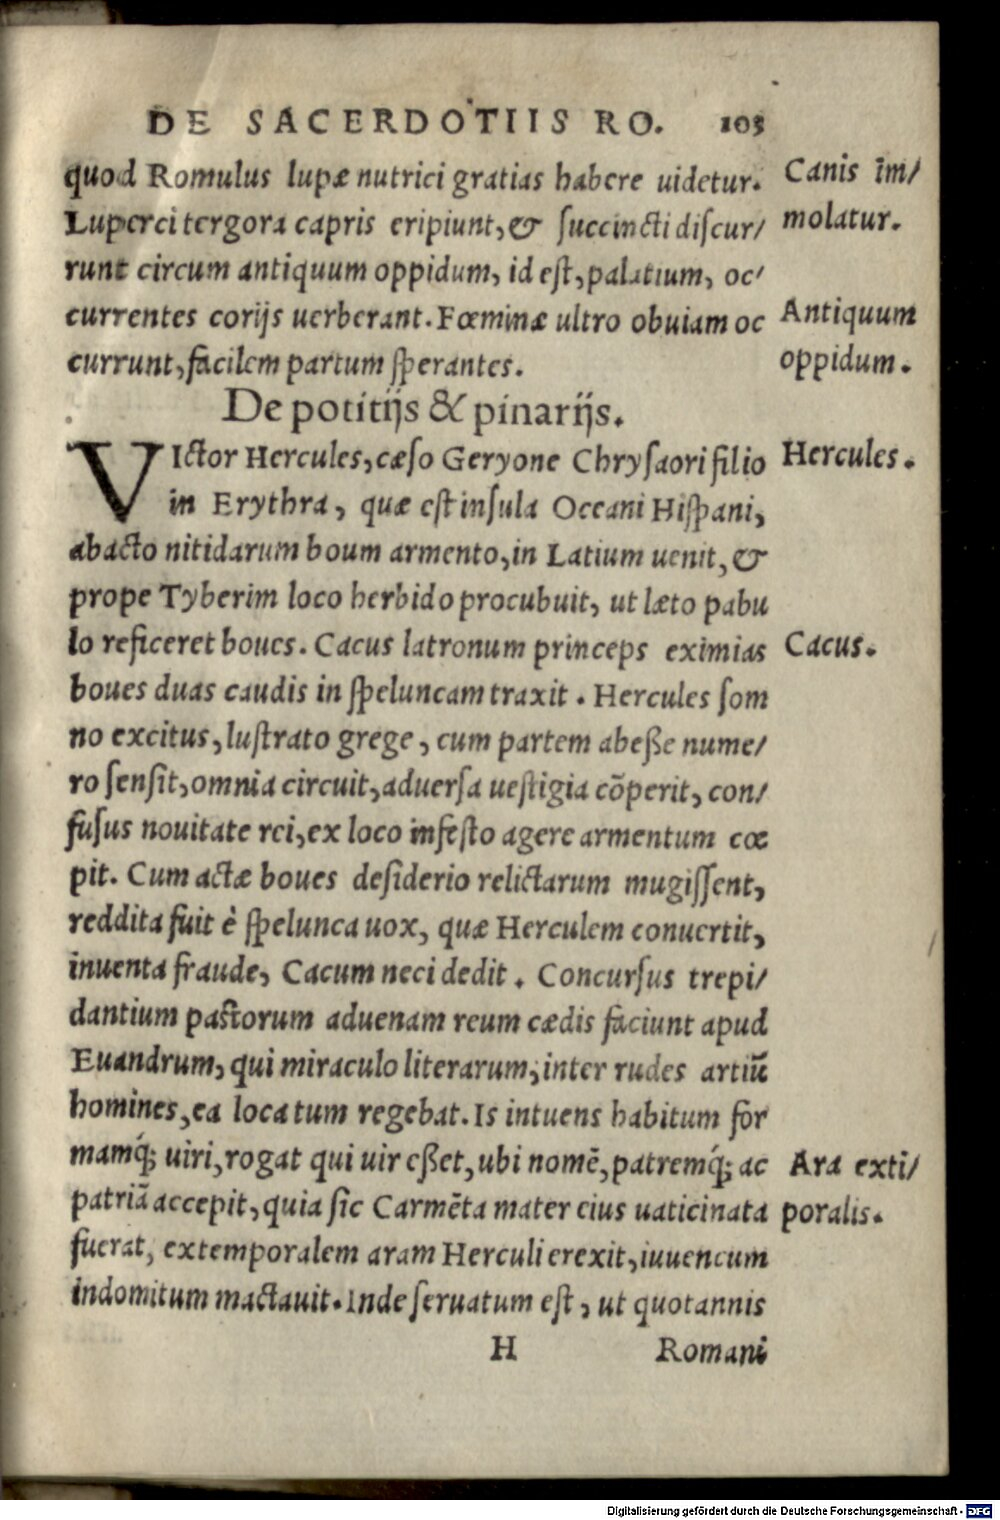 DE SACERDOTIIS RO. 105
quod Romulus lupæ nutrici gratias habere uidetur.
Canis im/
Luperci tergora capris eripiunt, & succincti discur/
molatur.
runt circum antiquum oppidum, id est, palatium, oc/
currentes corijs uerberant. Fœminæ ultro obuiam oc
Antiquum
currunt, facilem partum sperantes.
oppidum.
De potitijs & pinarijs.
VIctor Hercules, cæso Geryone Chrysaori filio
Hercules.
in Erythra, quæ est insula Oceani Hispani,
abacto nitidarum boum armento, in Latium uenit, &
prope Tyberim loco herbido procubuit, ut læto pabu
lo reficeret boues. Cacus latronum princeps eximias
Cacus.
boues duas caudis in speluncam traxit. Hercules som
no excitus, lustrato grege, cum partem abeße nume/
ro sensit, omnia circuit, aduersa uestigia cōperit, con/
fusus nouitate rei, ex loco infesto agere armentum cœ
pit. Cum actæ boues desiderio relictarum mugissent,
reddita fuit è spelunca uox, quæ Herculem conuertit,
inuenta fraude, Cacum neci dedit. Concursus trepi/
dantium pastorum aduenam reum cædis faciunt apud
Euandrum, qui miraculo literarum, inter rudes artiū
homines, ea loca tum regebat. Is intuens habitum for
mamq́; uiri, rogat qui uir eßet, ubi nomē, patremq́; ac
Ara exti/
patriā accepit, quia sic Carmēta mater eius uaticinata
poralis.
fuerat, extemporalem aram Herculi erexit, iuuencum
indomitum mactauit. Inde seruatum est, ut quotannis
H Romani
Digitalisierung gefördert durch die Deutsche Forschungsgemeinschaft - DFG